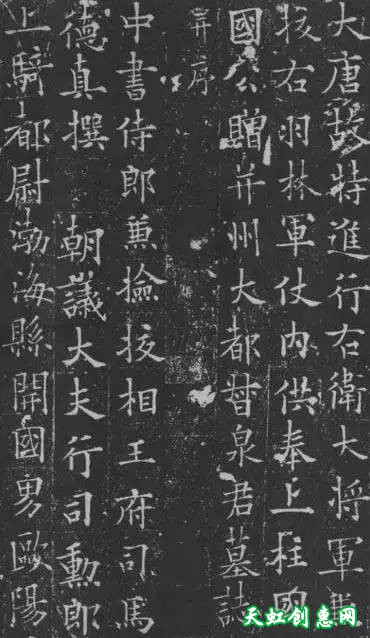 大唐故特進行右衛大將軍兼
挍右羽林軍仗內供奉上柱國
國公贈并州大都督泉君墓誌
并序
中書侍郎兼撿挍相王府司馬
德真撰 朝議大夫行司勳郎
上騎都尉渤海縣開國男歐陽
天虹创意网